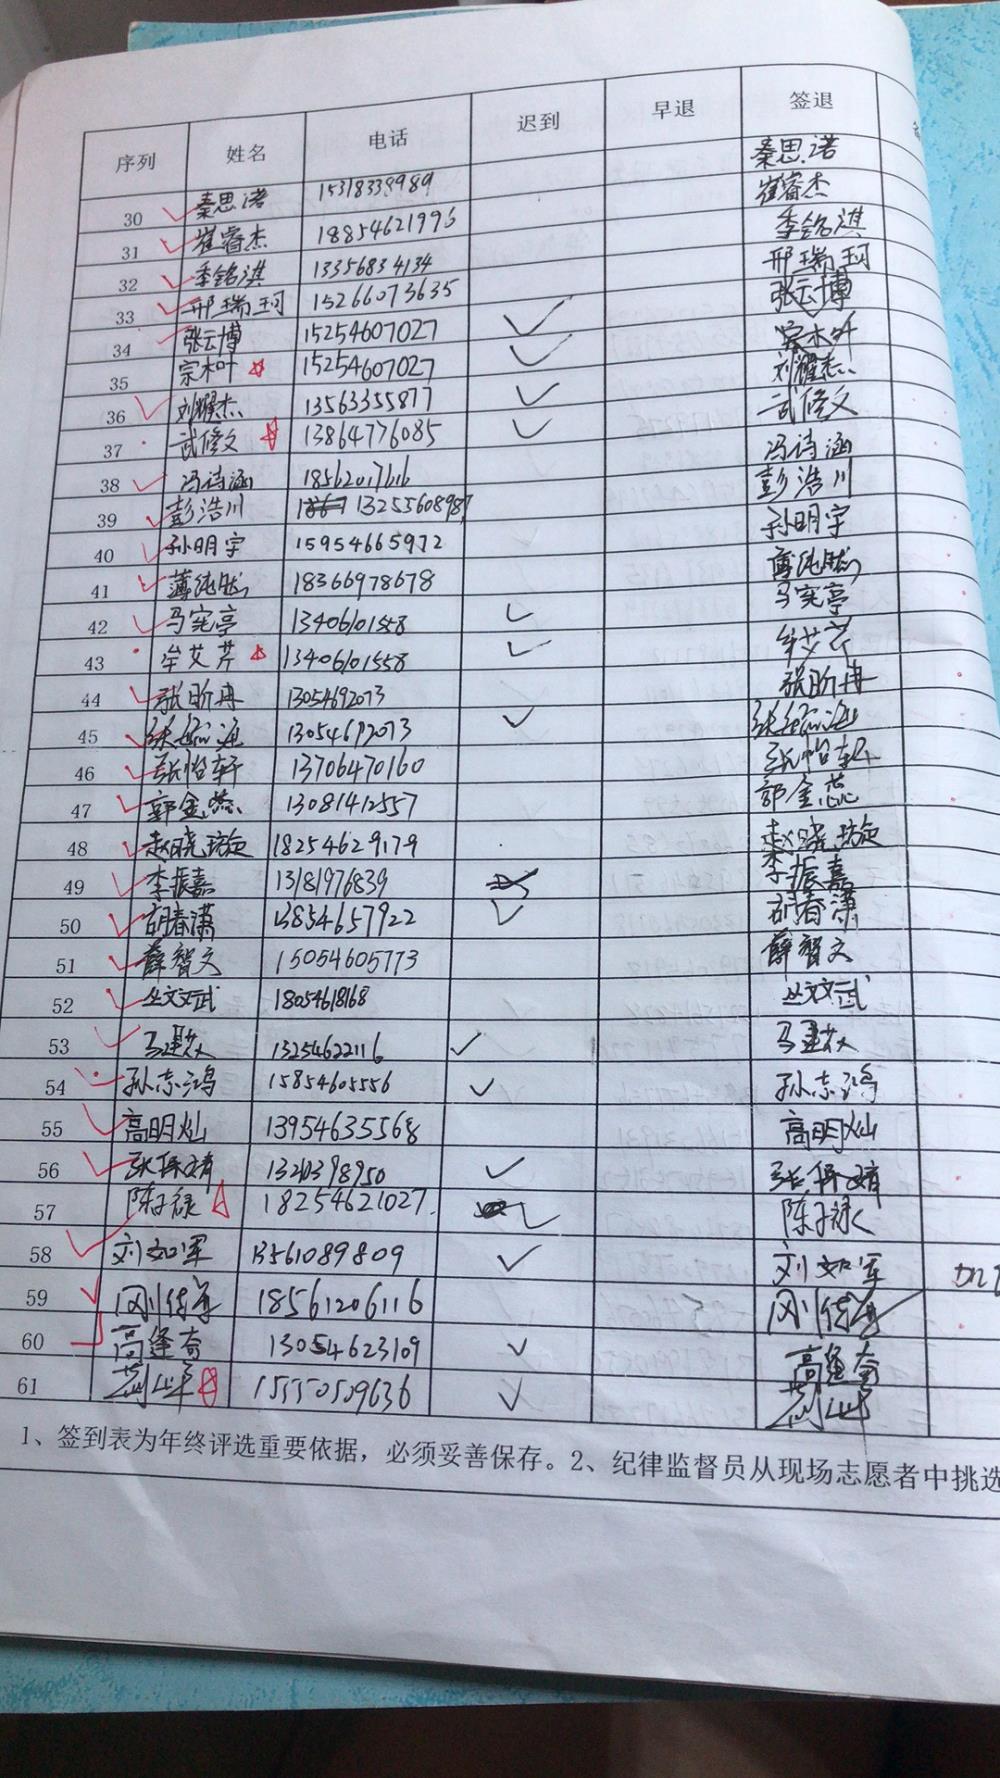 序列 姓名 电话 迟到 早退 签退
30 秦思诺 15318338989 秦思诺
31 崔睿杰 18854621996 崔睿杰
32 季铭淇 13356834134 季铭淇
33 邢瑞珂 15266073635 邢瑞珂
34 张云博 15254607027 ✓ 张云博
35 宗木叶 15254607027 ✓ 宗木叶
36 刘耀杰 13563355877 ✓ 刘耀杰
37 武修文 13864776085 ✓ 武修文
38 冯诗涵 18562017616 冯诗涵
39 彭浩川 13255608987 彭浩川
40 孙明宇 15954665972 孙明宇
41 薄纯 18366978678 薄纯
42 马宪亭 13406101558 ✓ 马宪亭
43 牟艾芹 13406101558 ✓ 牟艾芹
44 张昕冉 13054692073 张昕冉
45 张 13054692073 ✓ 张
46 张怡轩 13706470160 张怡轩
47 郭金蕊 13081412557 郭金蕊
48 赵晓璇 18254629179 赵晓璇
49 李振嘉 13181976839 李振嘉
50 胡春潇 13854657922 ✓ 胡春潇
51 薛智文 15054605773 薛智文
52 丛文武 18054618168 丛文武
53 马建 13254622116 ✓ 马建
54 孙志鸿 15854605556 ✓ 孙志鸿
55 高明灿 13954635568 高明灿
56 张保靖 1321398950 ✓ 张保靖
57 陈子禄 18254621027. ✓ 陈子禄
58 刘如军 13561089809 ✓ 刘如军
59 18561206116
60 高逢奇 13054623109 ✓ 高逢奇
61 15550509636 ✓
1、签到表为年终评选重要依据，必须妥善保存。2、纪律监督员从现场志愿者中挑选